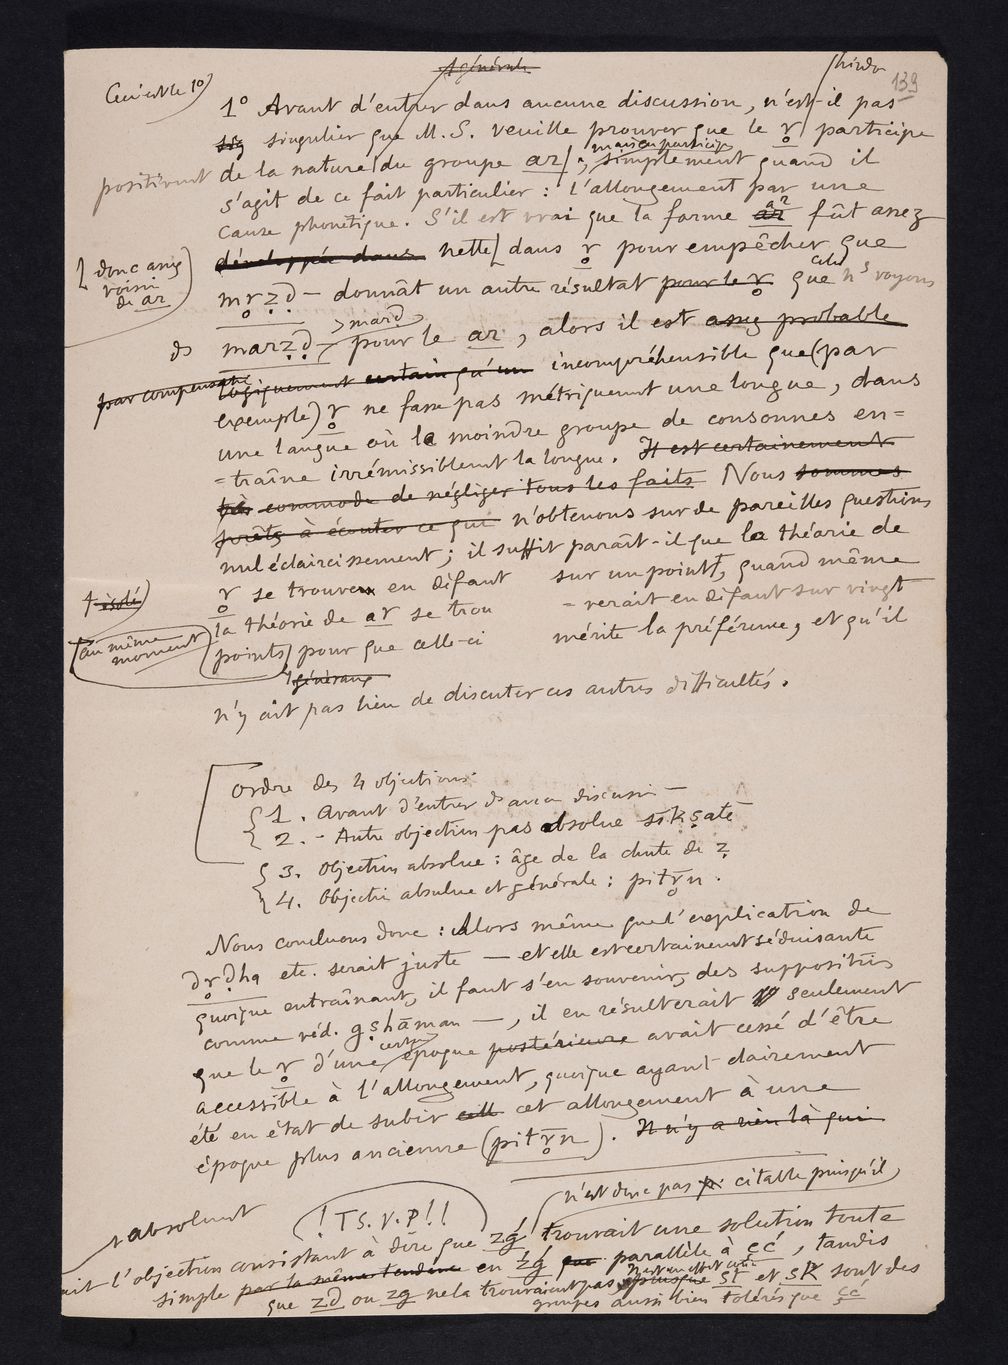 générale
139
Ceci est le 1º)
1º Avant d'entrer dans aucune discussion, n'est-il pas
singulier que M. S. veuille prouver que le r̥ participe
positivement de la nature du groupe ar, mais en participe simplement quand il
s'agit de ce fait particulier : l'allongement par une
cause phonétique. S'il est vrai que la forme ar fût assez
développée dans nette dans r̥ pour empêcher que
[donc assez voisin de ar)
mr̥ẓḍ — donnât un autre résultat pour le r̥ que celui que ns voyons
ds marẓḍ — > mārḍ pour le ar, alors il est assez probable
par compensation logiquement certain qu'un incompréhensible que (par
exemple) r̥ ne fasse pas métriquement une longue, dans
une langue où le moindre groupe de consonnes en=
=traîne irrémissiblement la longue. Il est certainement
très commode de négliger tous les faits Nous sommes
prêts à écouter ce qui n'obtenons sur de pareilles questions
nul éclaircissement ; il suffit paraît-il que la théorie de
r̥ se trouve en défaut sur un point, quand même
isolé)
la théorie de ar se trou=verait en défaut sur vingt
(au même moment)
points pour que celle-ci mérite la préférence, et qu'il
généraux
n'y ait pas lieu de discuter ces autres difficultés.
Ordre des 4 objections
1. Avant d'entrer ds aucu discussi —
2. - Autre objection pas absolue śikṣate
3. Objection absolue : âge de la chute de ẓ
4. Objecti absolue et générale : pitr̥̄n.
Nous concluons donc : Alors même que l'explication de
dr̥ḍha etc. serait juste — et elle est certainement séduisante
quoique entraînant, il faut s'en souvenir, des suppositions
comme véd. gṣhāman —, il en résulterait seulement
que le r̥ d'une certne époque postérieure avait cessé d'être
accessible à l'allongement, quoique ayant clairement
été en état de subir cet allongement à une
époque plus ancienne (pitr̥̄n). Il n'y a rien là qui
n'est donc pas citable puisqu'il
absolument
(! T S. V. P !!
l'objection consistant à dire que zǵ trouvait une solution toute
simple par la même tendance en źǵ parallèle à çć, tandis
que zd ou zg ne la trouvaient pas, puisque st et sk sont des
groupes aussi bien tolérés que çć